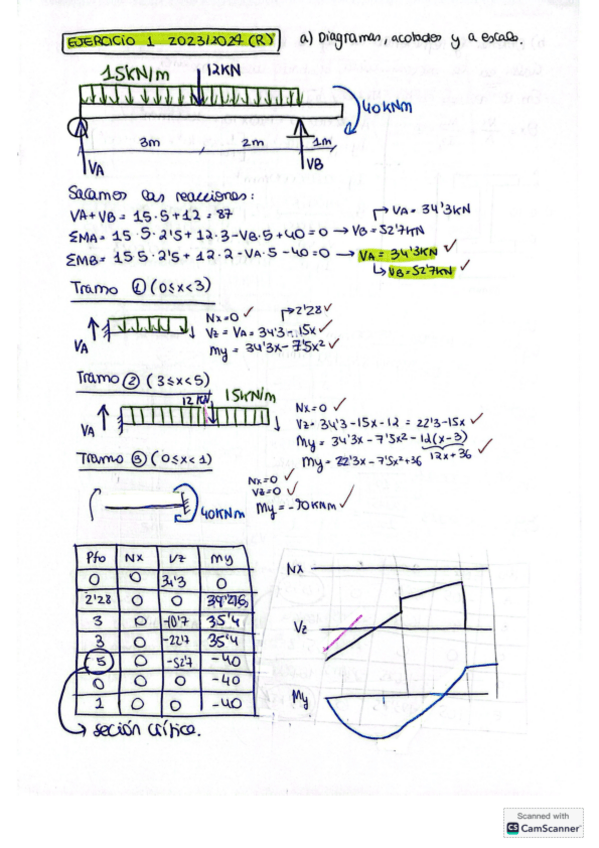 EJERCICIO 1 2023/2024 (R)
a) Diagramas, acotados y a escala.
15KN/m
12KN
40KNm
3m
2m
1m
VA
VB
Sacamos las reacciones:
VA+VB= 15·5+12 = 87
ΣMA= 15·5·2'5+12·3-VB·5+40=0 → VB=52'7KN
VA=34'3KN
ΣMB= 15·5·2'5+12·2-VA·5-40=0 → VA=34'3KN ✓
VB=52'7KN ✓
Tramo ① (0≤x<3)
VA
Nx=0 ✓
2'28 ✓
Vz = VA= 34'3-15x ✓
My = 34'3x-7'5x² ✓
Tramo ② (3≤x<5)
12KN
15KN/m
VA
Nx=0 ✓
Vz= 34'3-15x-12 = 22'3-15x ✓
My= 34'3x-7'5x²-12(x-3)
12x+36
My= 22'3x-7'5x²+36 ✓
Tramo ③ (0≤x<1)
40KNm
Nx=0 ✓
Vz=0 ✓
My=-40KNm ✓
Pto Nx Vz My
0 0 34'3 0
2'28 0 0 39'216
3 0 -10'7 35'4
3 0 -22'7 35'4
5 0 -52'7 -40
0 0 0 -40
1 0 0 -40
sección crítica.
Nx
Vz
My
Scanned with
CS CamScanner